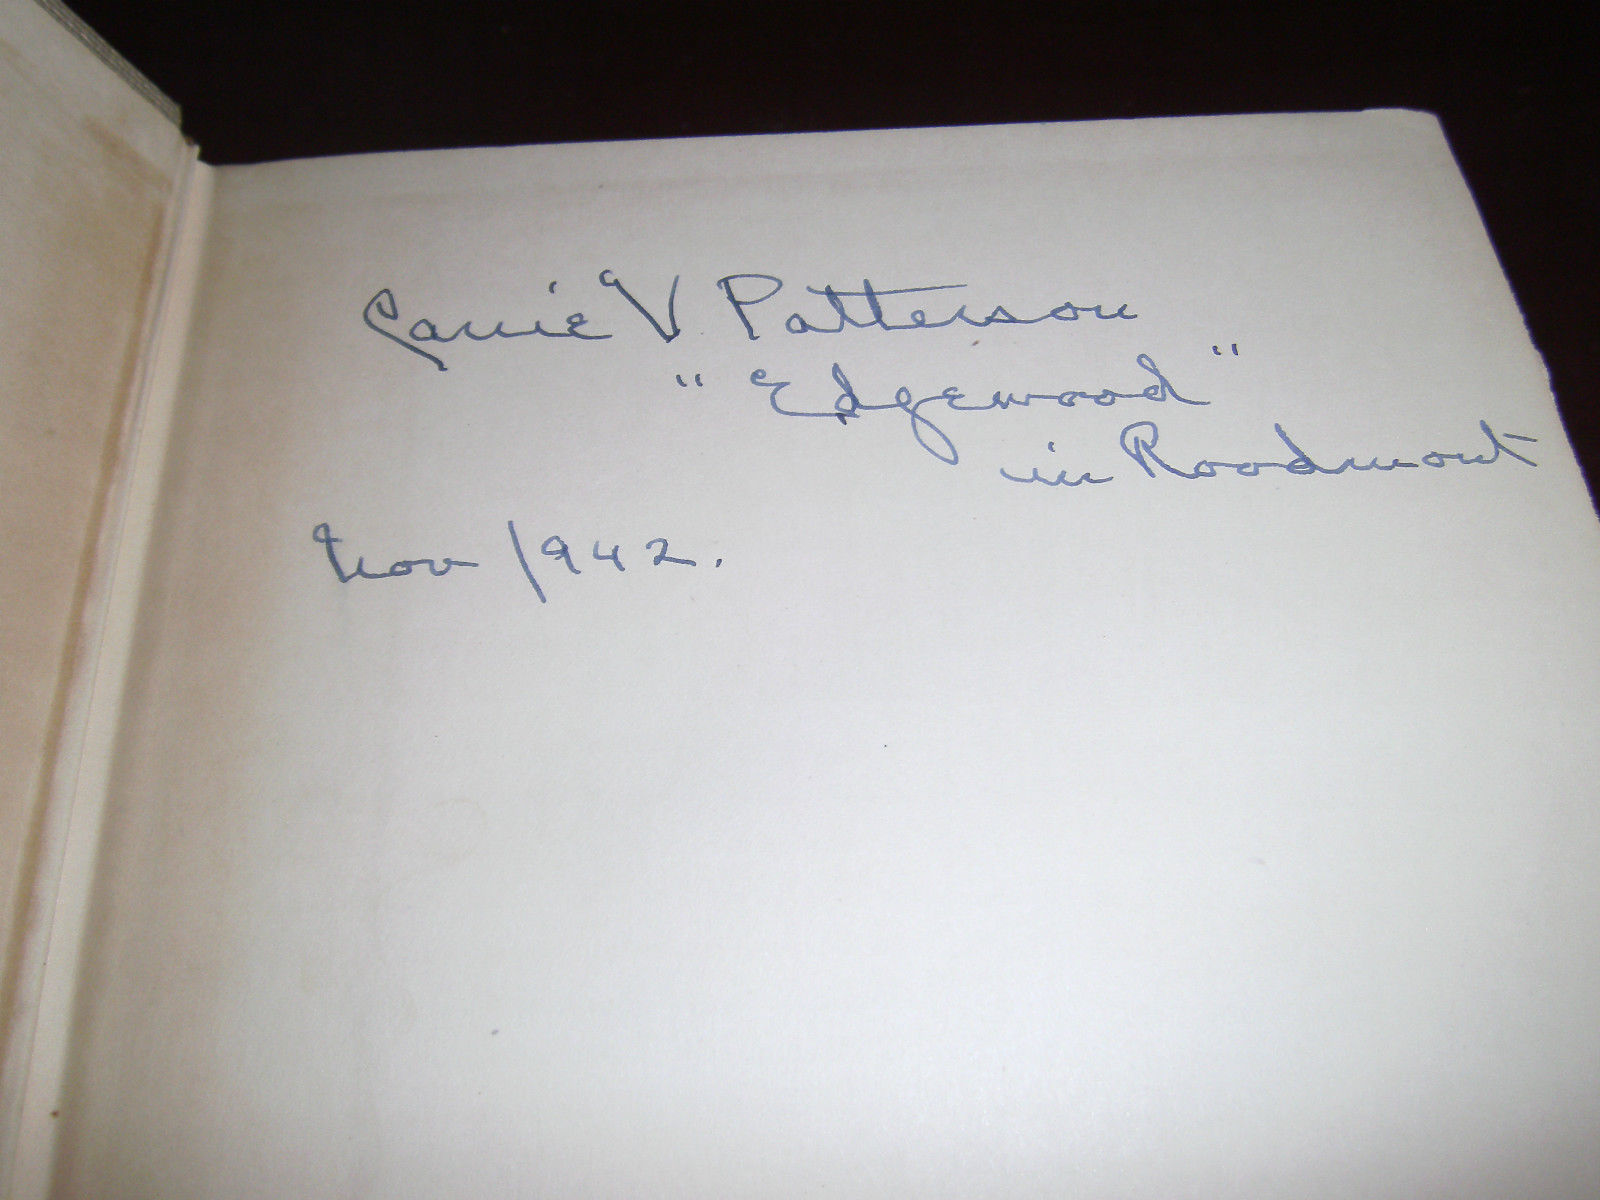 Carrie V Patterson
"Edgewood"
in Roodmont
Nov 1942.